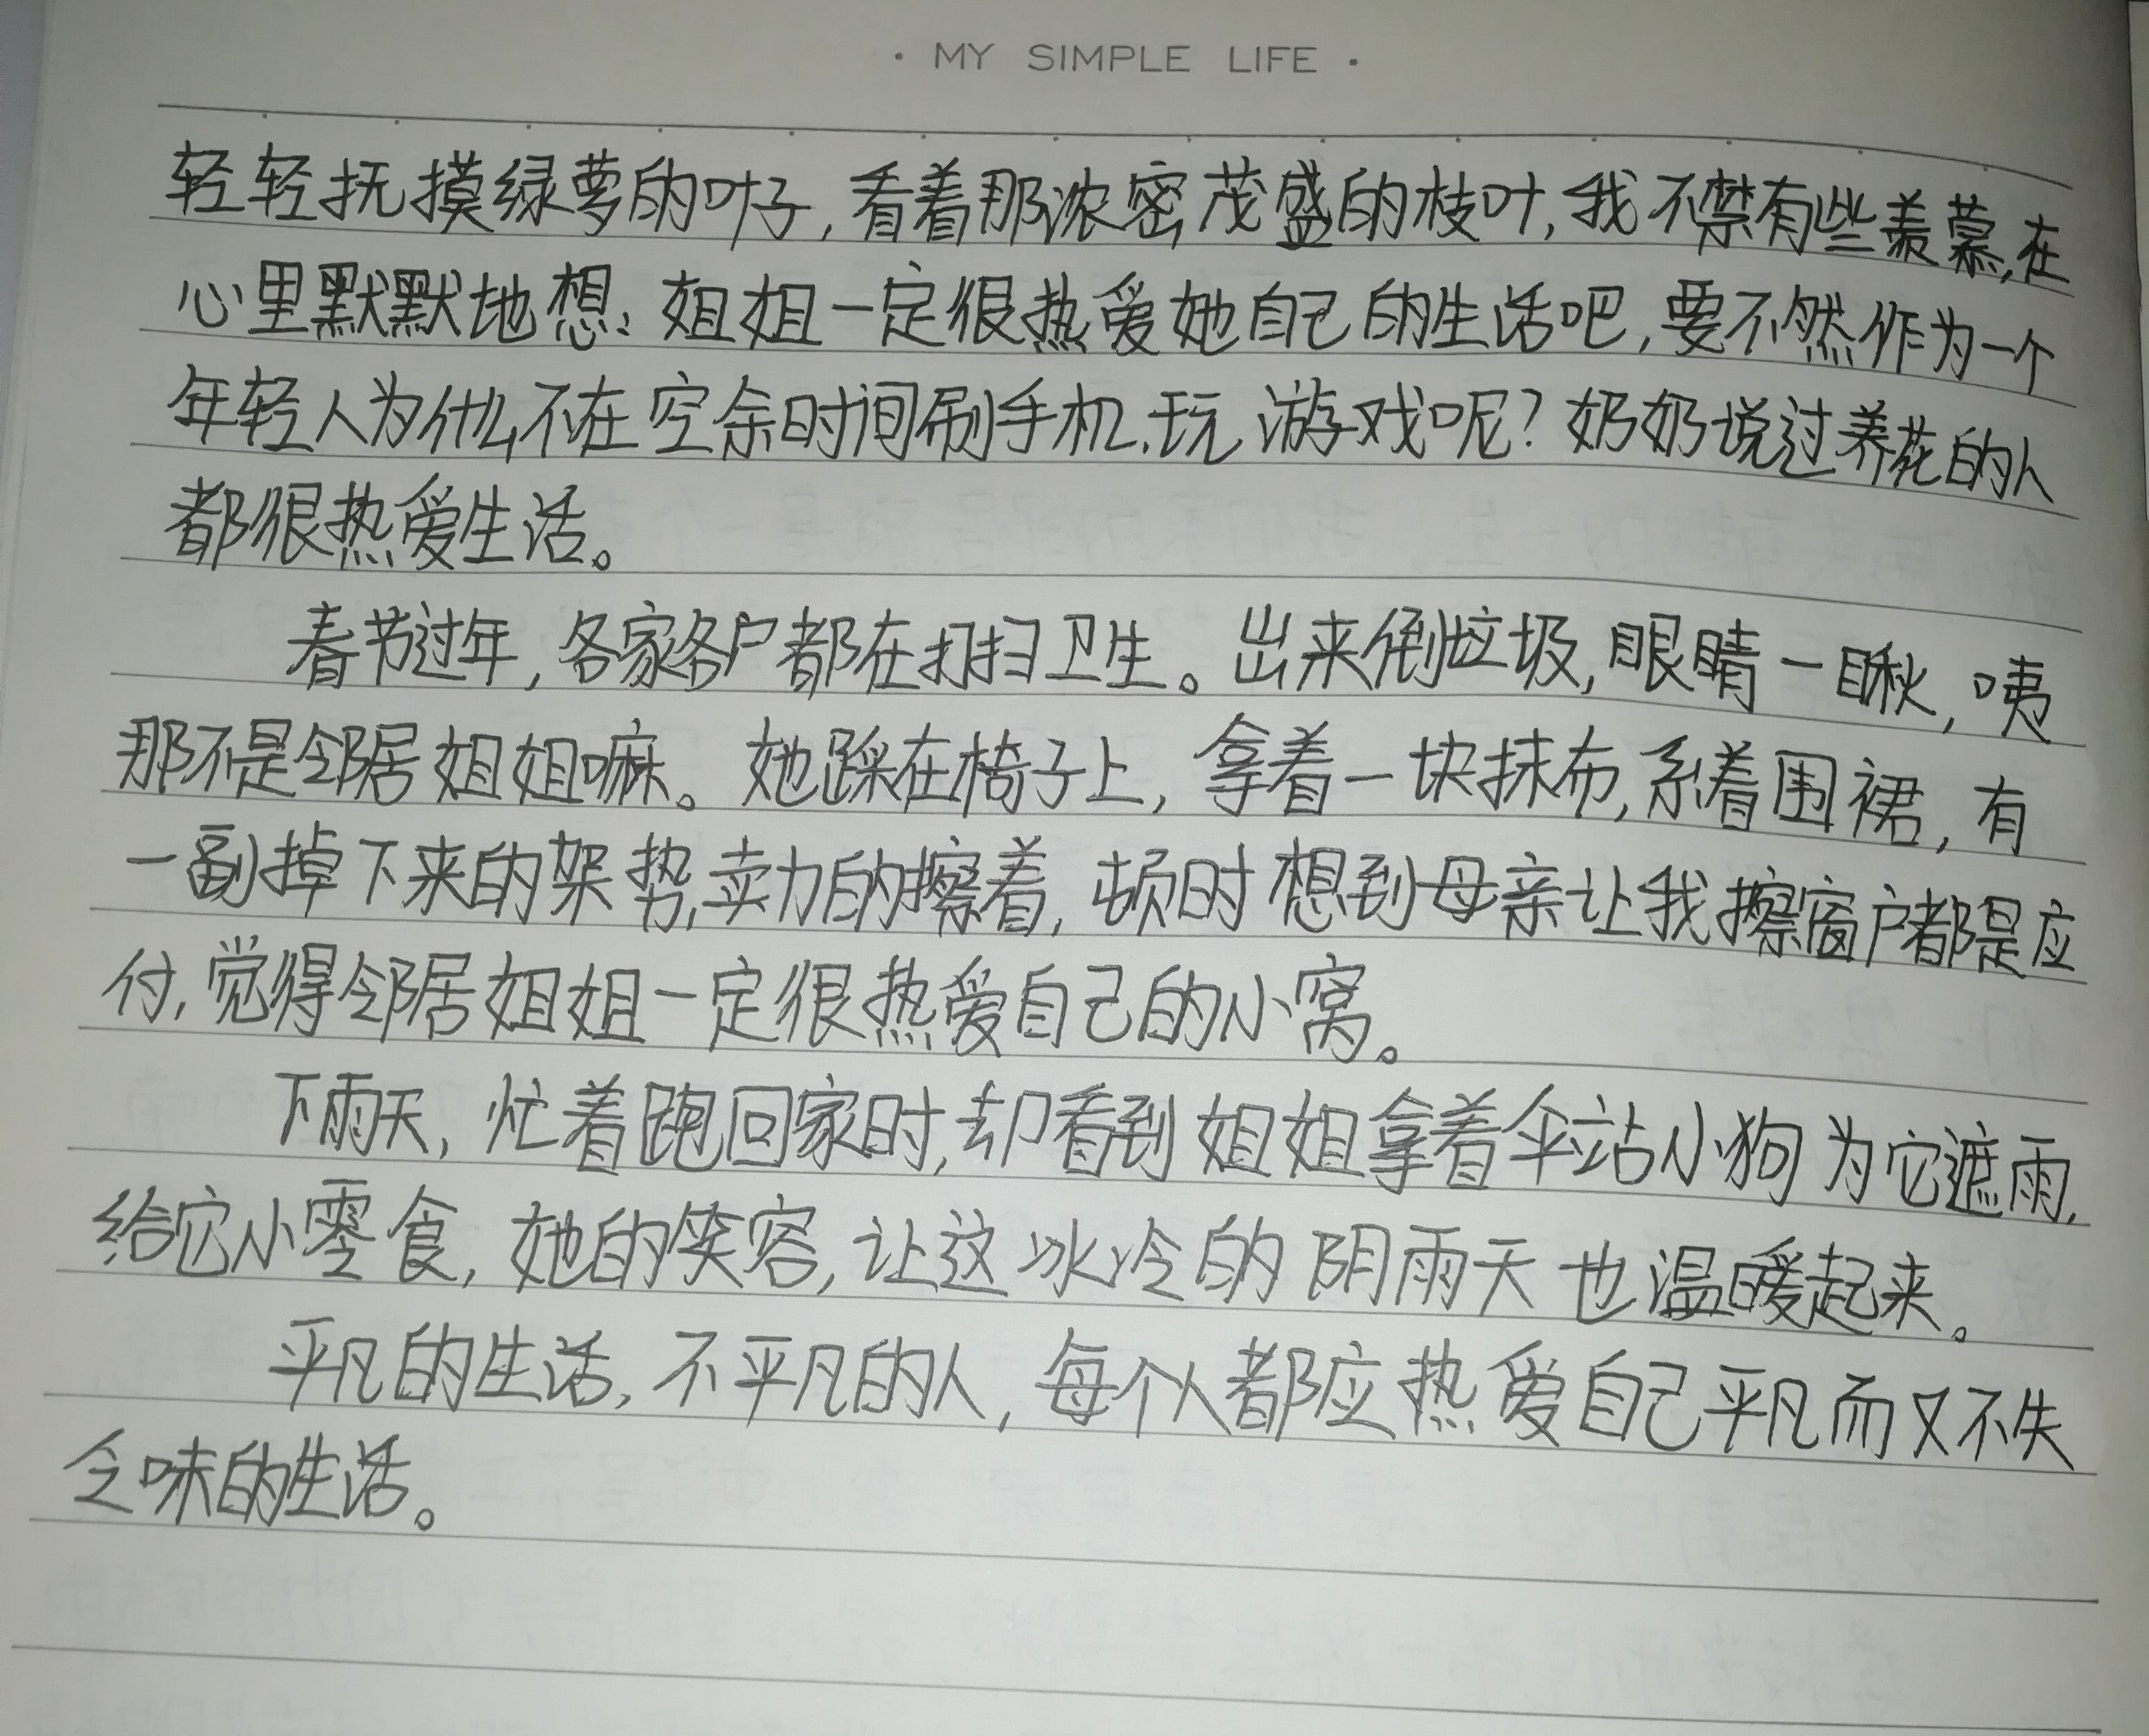 · MY SIMPLE LIFE ·
轻轻抚摸绿萝的叶子,看着那浓密茂盛的枝叶,我不禁有些羡慕,在
心里默默地想:姐姐一定很热爱她自己的生活吧,要不然作为一个
年轻人为什么不在空余时间刷手机、玩游戏呢?奶奶说过养花的人
都很热爱生活。
春节过年,各家各户都在打扫卫生。出来倒垃圾,眼睛一瞅,咦
那不是邻居姐姐嘛。她踩在椅子上,拿着一块抹布,系着围裙,有
一副掉下来的架势,卖力的擦着,顿时想到母亲让我擦窗户都是应
付,觉得邻居姐姐一定很热爱自己的小窝。
下雨天,忙着跑回家时,却看到姐姐拿着伞站小狗为它遮雨,
给它小零食,她的笑容,让这冰冷的阴雨天也温暖起来。
平凡的生活,不平凡的人,每个人都应热爱自己平凡而又不失
乏味的生活。